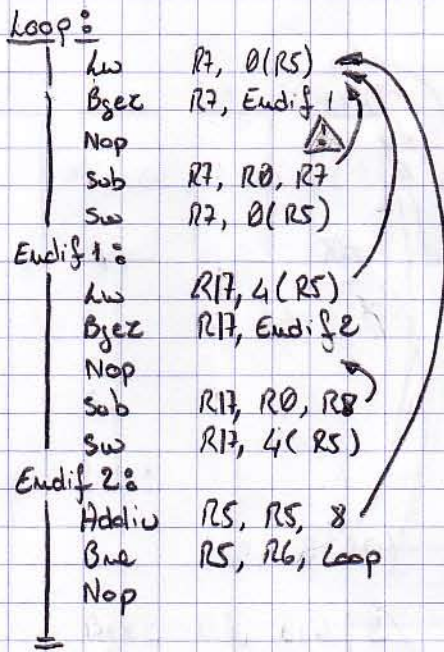 Loop :
Lw R7, 0(R5)
Bgez R7, Endif 1
Nop
!
Sub R7, R0, R7
Sw R7, 0(R5)
Endif 1 :
Lw R17, 4(R5)
Bgez R17, Endif 2
Nop
Sub R17, R0, R8
Sw R17, 4(R5)
Endif 2 :
Addiu R5, R5, 8
Bne R5, R6, Loop
Nop